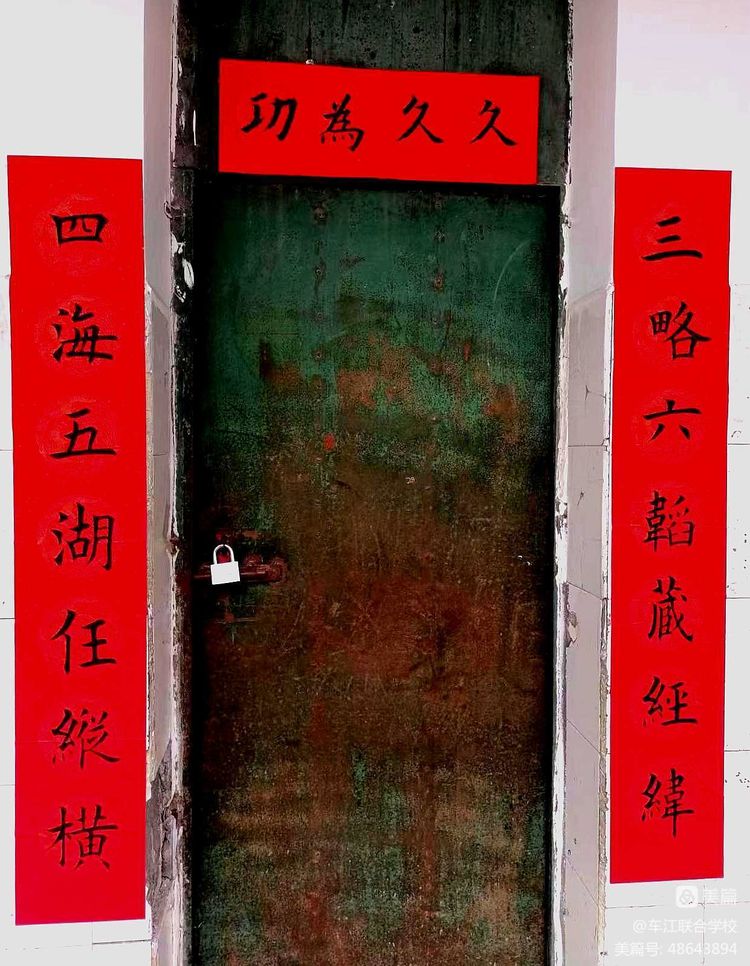 久久為功
三略六韜藏經緯
四海五湖任縱橫
美篇
@车江联合学校
美篇号: 48643894